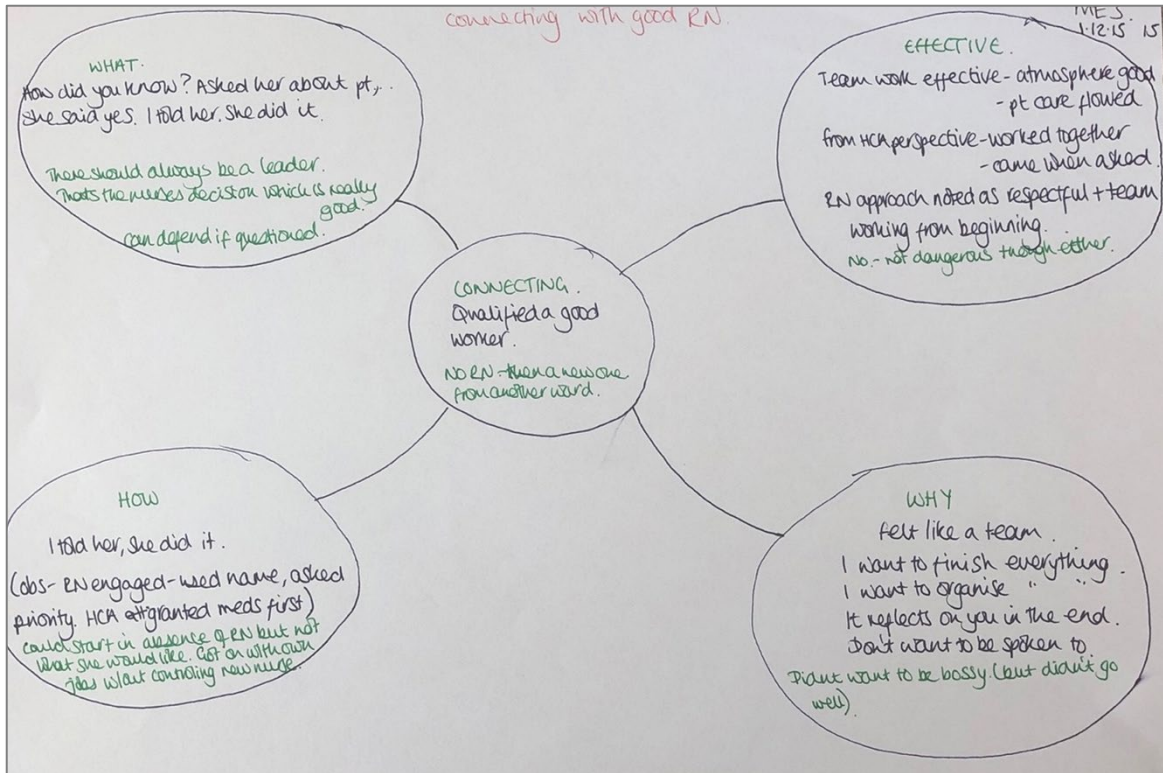 connecting with good RN.
MES.
1.12.15 15
WHAT.
How did you know? Asked her about pt,
she said yes. I told her. She did it.
There should always be a leader.
Thats the nurses decision which is really
good.
can defend if questioned.
EFFECTIVE.
Team work effective - atmosphere good
- pt care flowed
from HCA perspective - worked together
- came when asked.
RN approach noted as respectful + team
working from beginning.
No - not dangerous though either.
CONNECTING.
Qualified a good
worker.
NO RN - then a new one
from another ward.
HOW
I told her, she did it.
(obs - RN engaged - used name, asked
priority. HCA granted meds first)
could start in absence of RN but not
what she would like. Got on with own
jobs w/out controlling new nurse.
WHY
felt like a team.
I want to finish everything.
I want to organise " "
It reflects on you in the end.
Don't want to be spoken to.
Didnt want to be bossy. (but didn't go
well).